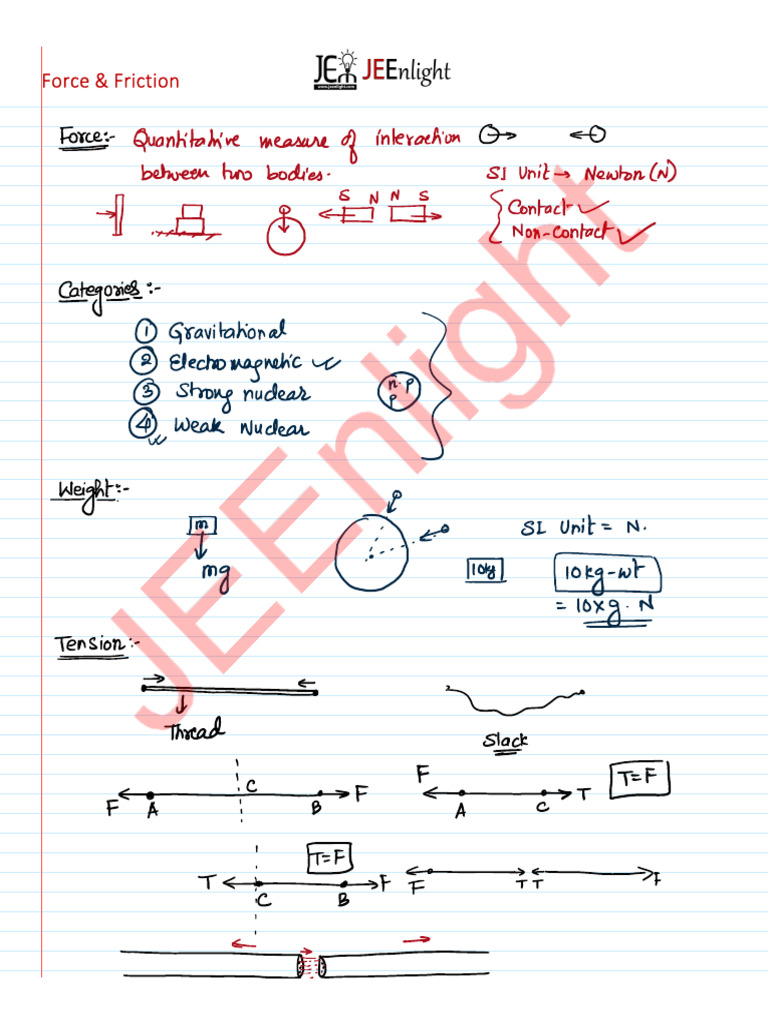 JEEnlight
www.jeenlight.com
Force & Friction
Force:- Quantitative measure of interaction
between two bodies.
SI Unit → Newton (N)
S N N S
Contact ✓
Non-Contact ✓
Categories:-
① Gravitational
② Electromagnetic ✓
③ Strong nuclear
④ Weak Nuclear
n p
p
Weight:-
m
mg
SI Unit = N.
10kg
10kg-wt
= 10xg. N
Tension:-
Thread
Slack
F A C B F
F A C T
T=F
T=F
T C B F
F T T F
JEEnlight